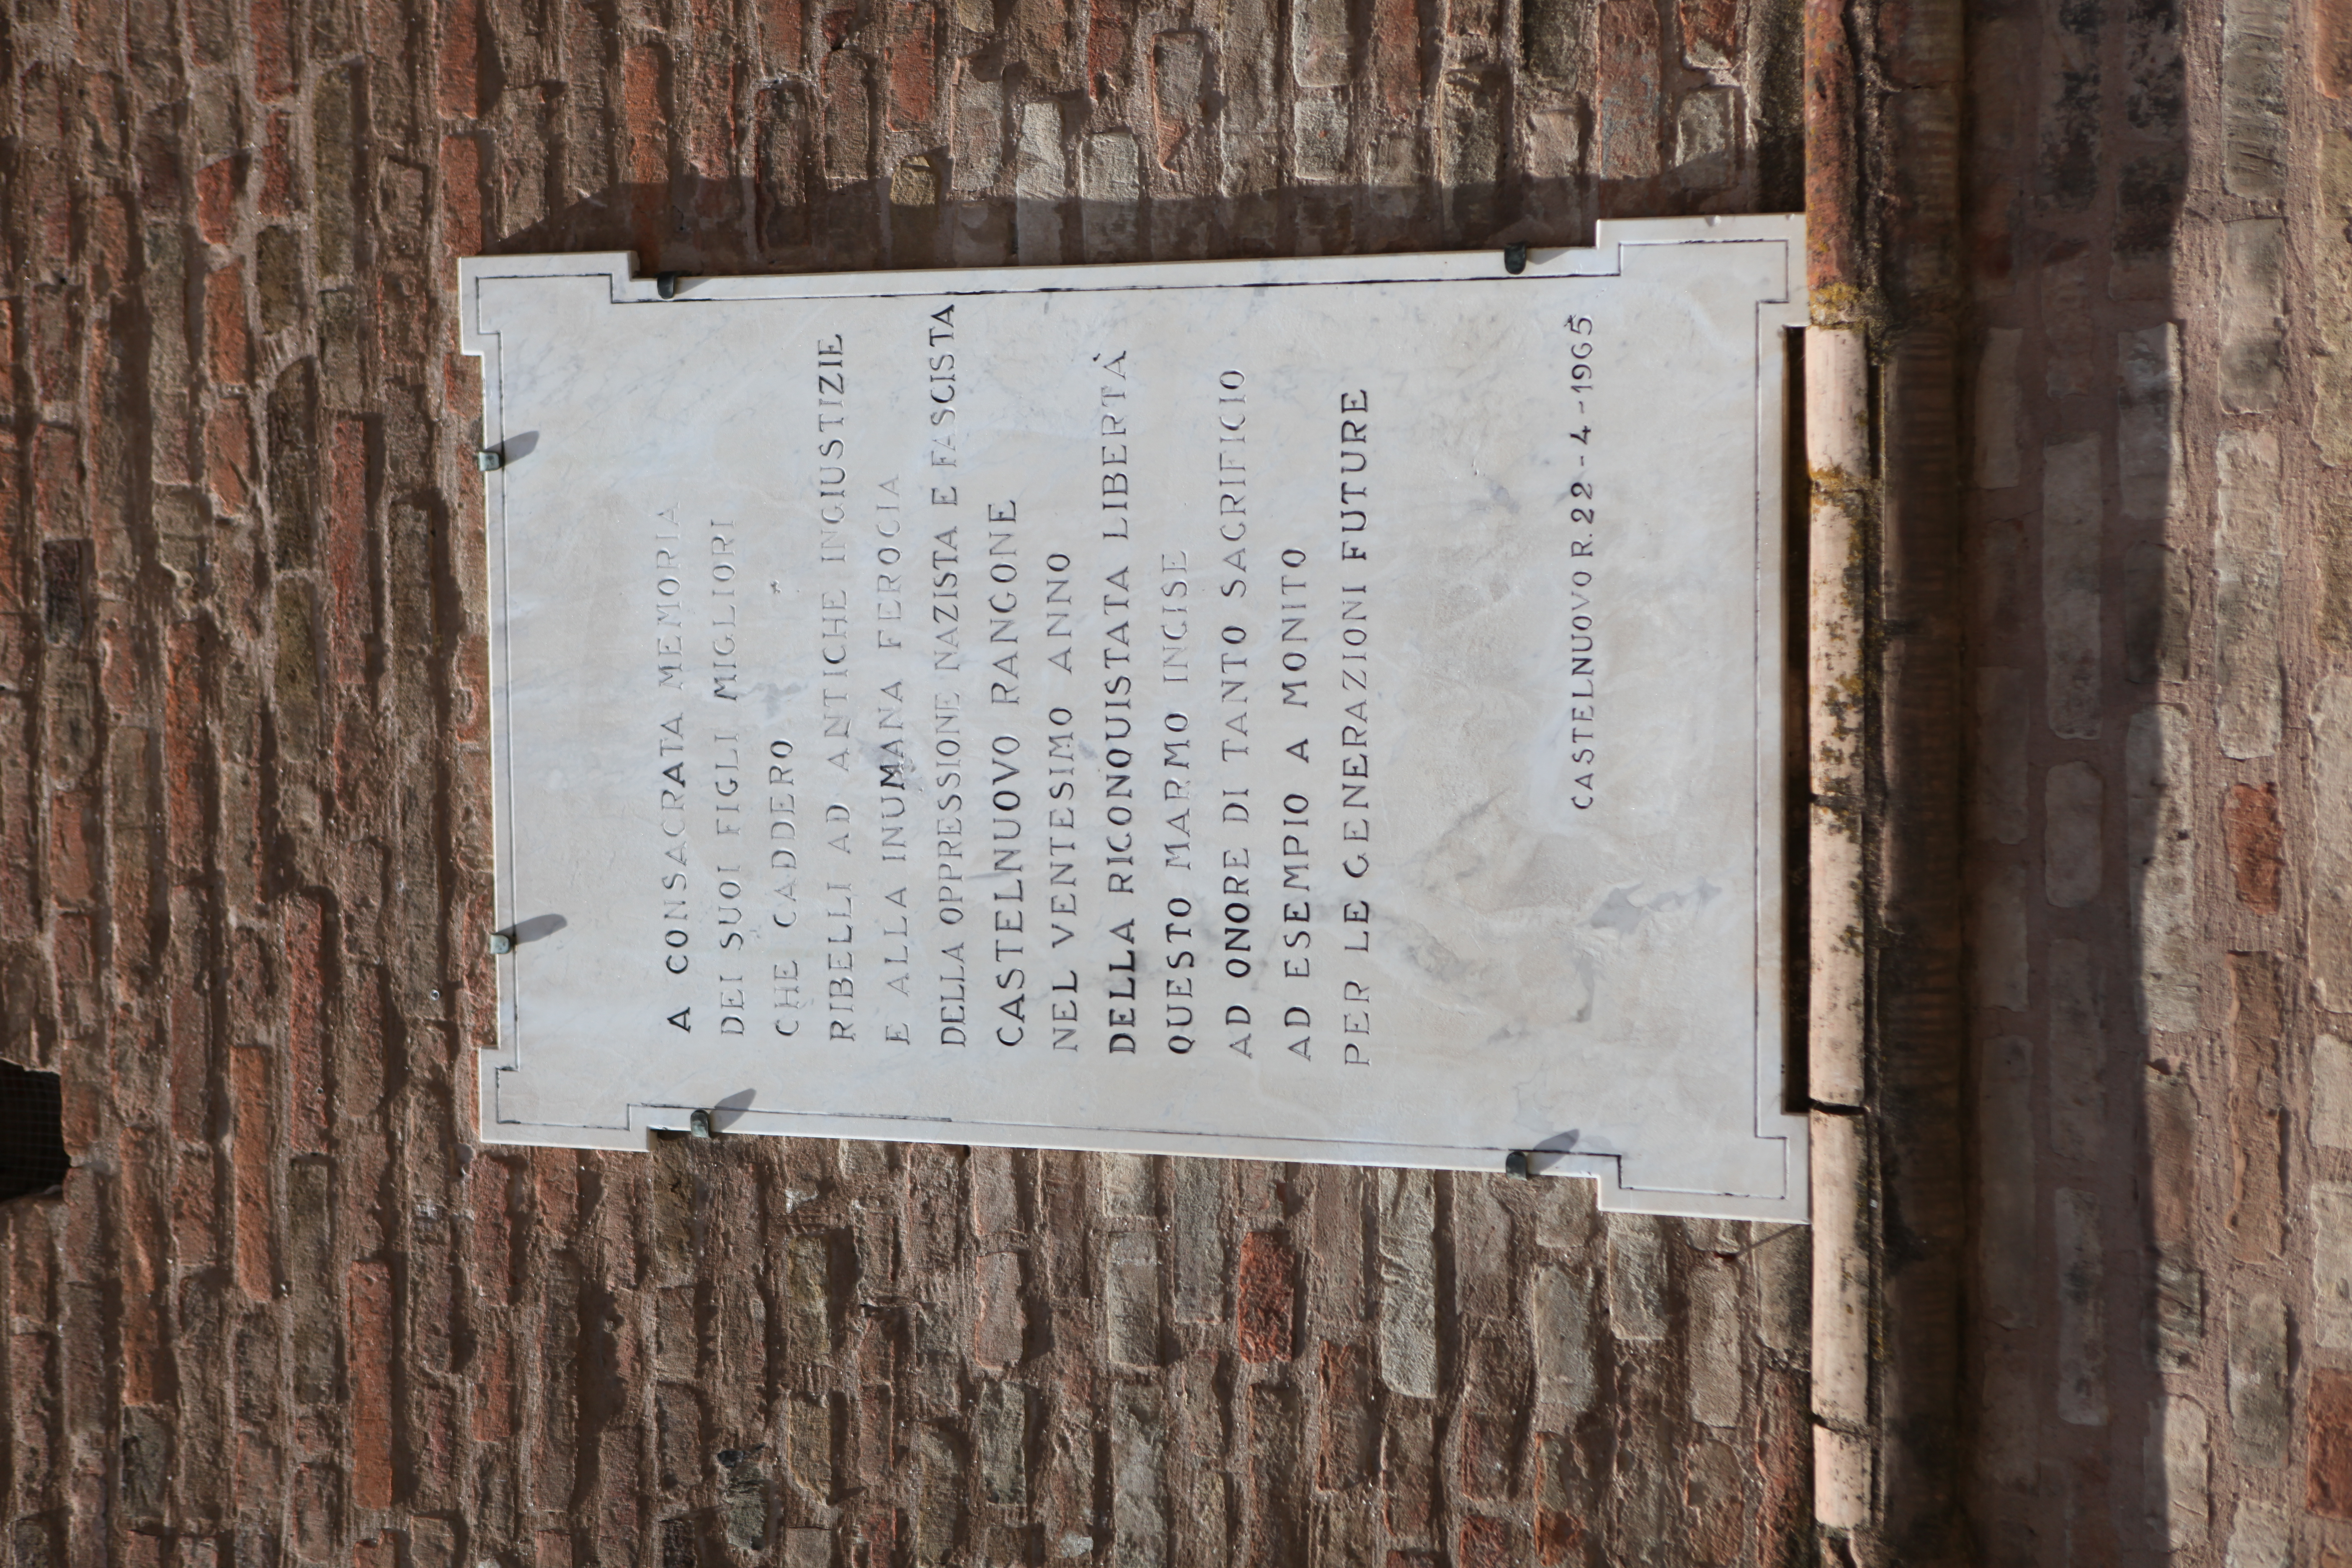 A CONSACRATA MEMORIA
DEI SUOI FIGLI MIGLIORI
CHE CADDERO
RIBELLI AD ANTICHE INGIUSTIZIE
E ALLA INUMANA FEROCIA
DELLA OPPRESSIONE NAZISTA E FASCISTA
CASTELNUOVO RANGONE
NEL VENTESIMO ANNO
DELLA RICONQUISTATA LIBERTÀ
QUESTO MARMO INCISE
AD ONORE DI TANTO SACRIFICIO
AD ESEMPIO A MONITO
PER LE GENERAZIONI FUTURE
CASTELNUOVO R. 22-4-1965